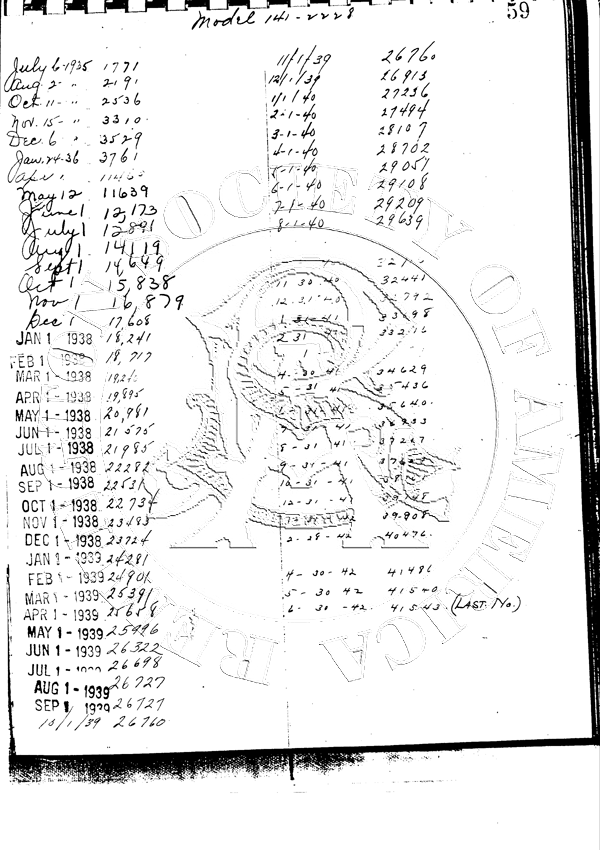 Model 141-2228
59
July 6-1935 1771
Aug 2- " 2191
Oct. 11- " 2536
Nov. 15- " 3310
Dec. 6 " 3529
Jan. 24-36 3761
May 12 11639
June 1 12,173
July 1 12891
Aug 1 14119
Sept 1 14,649
Oct 1 15,838
Nov 1 16,879
Dec 1 17,608
JAN 1 1938 18,241
FEB 1 18,717
MAR 1 - 1938
APR 1 - 1938 19,895
MAY 1 - 1938 20,981
JUN 1 - 1938 21575
JUL 1 - 1938 21,985
AUG 1 - 1938 22282
SEP 1 - 1938 22531
OCT 1 - 1938 22734
NOV 1 - 1938 23483
DEC 1 - 1938 23724
JAN 1 - 1939 24281
FEB 1 - 1939 24901
MAR 1 - 1939 25391
APR 1 - 1939 25658
MAY 1 - 1939 25996
JUN 1 - 1939 26322
JUL 1 - 26698
AUG 1 - 1939 26727
SEP 1 1939 26727
10/1/39 26760
11/1/39 26760
12/1/39 26913
1/1/40 27236
2-1-40 27494
3-1-40 28107
4-1-40 28702
5-1-40 29051
6-1-40 29108
7-1-40 29209
8-1-40 29639
11 30 40 32441
12-31-40 32792
1-31-41
2 31 33216
4-30-41 34629
5-31 41 35436
8-31 41 37267
9-31-41
10-31-41
12-31-41
39808
2-28-42 40476
4-30-42 41486
5-30 42 41540
6-30-42. 41543 (LAST No.)
SOCIETY OF AMERICA